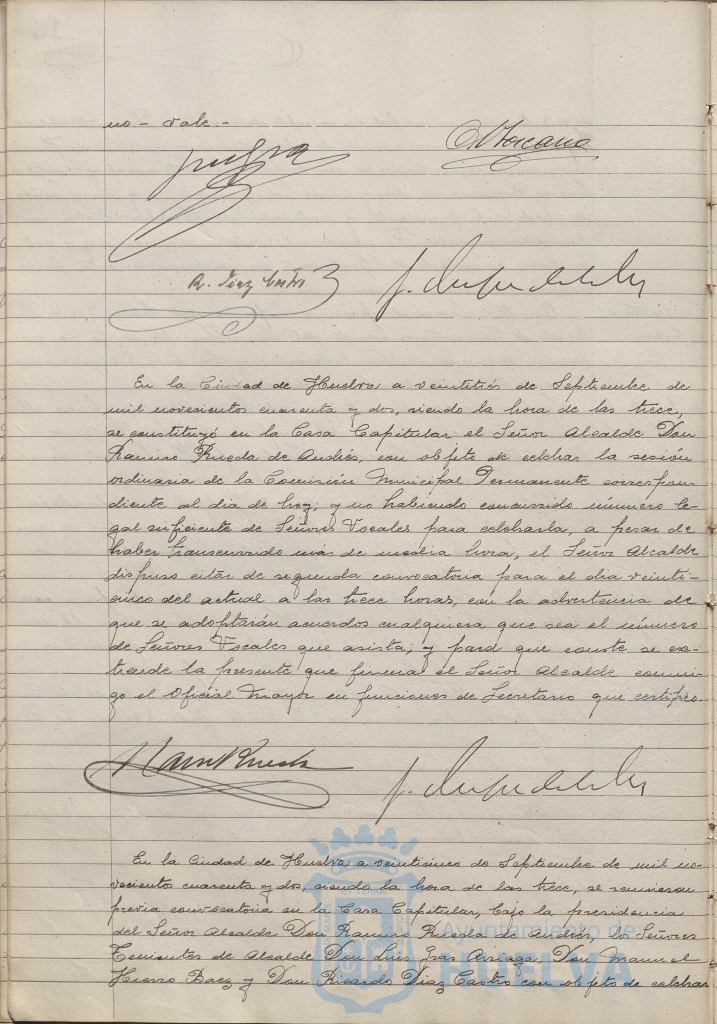 no - vale -
R. Díaz Castro
En la Ciudad de Huelva a veintitrés de Septiembre de
mil novecientos cuarenta y dos, siendo la hora de las trece,
se constituyó en la Casa Capitular el Señor Alcalde Don
Ramiro Rueda de Andrés, con objeto de celebrar la sesión
ordinaria de la Comisión Municipal Permanente correspon-
diente al dia de hoy; y no habiendo concurrido número le-
gal suficiente de Señores Vocales para celebrarla, a pesar de
haber transcurrido más de media hora, el Señor Alcalde
dispuso citar de segunda convocatoria para el dia veinti-
cinco del actual a las trece horas, con la advertencia de
que se adoptarán acuerdos cualquiera que sea el número
de Señores Vocales que asista; y para que conste se ex-
tiende la presente que firma el Señor Alcalde conmi-
go el Oficial Mayor en funciones de Secretario que certifico.
Ram Rueda
En la Ciudad de Huelva a veinticinco de Septiembre de mil no-
vecientos cuarenta y dos, siendo la hora de las trece, se reunieron
previa convocatoria en la Casa Capitular, bajo la presidencia
del Señor Alcalde Don Ramiro Rueda de Andrés, los Señores
Tenientes de Alcalde Don Luis Gras Arriaga, Don Manuel
Hierro Baez y Don Ricardo Diaz Castro con objeto de celebrar
Ayuntamiento de
HUELVA